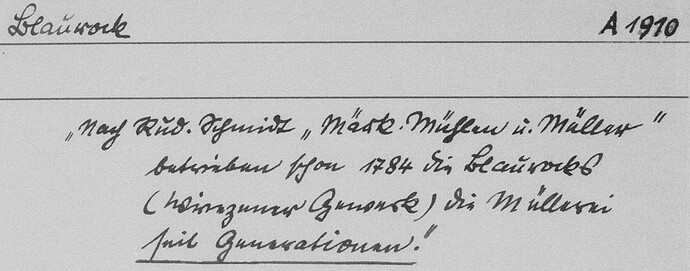 Blaurock A 1910
„Nach Rud. Schmidt „Märk. Mühlen u. Müller"
betrieben schon 1784 die Blaurocks
(Wriezener Gewerk) die Müllerei
seit Generationen."